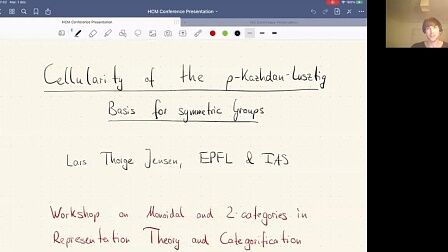 HCM Conference Presentation
HCM Conference Presentation
Cellularity of the p-Kazhdan-Lusztig
Basis for symmetric Groups
Lars Thorge Jensen, EPFL & IAS
Workshop on Monoidal and 2-categories in
Representation Theory and Categorification